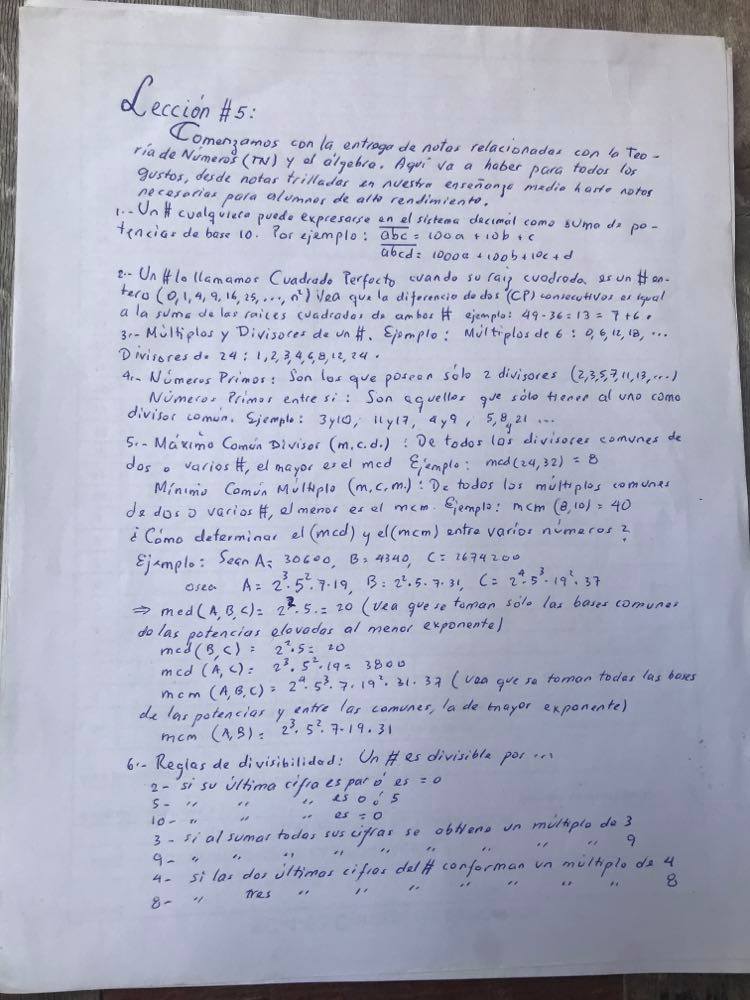 Lección #5:
Comenzamos con la entrega de notas relacionadas con la Teo-
ría de Números (TN) y el álgebra. Aquí va a haber para todos los
gustos, desde notas trilladas en nuestra enseñanza media hasta notas
necesarias para alumnos de alto rendimiento.
1.- Un # cualquiera puede expresarse en el sistema decimal como suma de po-
tencias de base 10. Por ejemplo: \overline{abc} = 100a + 10b + c
\overline{abcd} = 1000a + 100b + 10c + d
2.- Un # lo llamamos Cuadrado Perfecto cuando su raíz cuadrada es un # en-
tero (0, 1, 4, 9, 16, 25, ..., n²) Vea que la diferencia de dos (CP) consecutivos es igual
a la suma de las raíces cuadradas de ambos # ejemplo: 49-36=13=7+6.
3.- Múltiplos y Divisores de un #. Ejemplo: Múltiplos de 6: 0, 6, 12, 18, ...
Divisores de 24: 1, 2, 3, 4, 6, 8, 12, 24.
4.- Números Primos: Son los que poseen sólo 2 divisores (2, 3, 5, 7, 11, 13, ...)
Números Primos entre si: Son aquellos que sólo tienen al uno como
divisor común. Ejemplo: 3 y 10, 11 y 17, 4 y 9, 5, 8 y 21 ...
5.- Máximo Común Divisor (m.c.d.): De todos los divisores comunes de
dos o varios #, el mayor es el mcd Ejemplo: mcd(24,32) = 8
Mínimo Común Múltiplo (m.c.m.): De todos los múltiplos comunes
de dos o varios #, el menor es el mcm. Ejemplo: mcm (8,10) = 40
¿Cómo determinar el (mcd) y el (mcm) entre varios números?
Ejemplo: Sean A= 30600, B= 4340, C= 2674200
osea A= 2³·5²·7·19, B= 2²·5·7·31, C= 2⁴·5³·19²·37
⇒ mcd (A,B,C)= 2²·5= 20 (Vea que se toman sólo las bases comunes
de las potencias elevadas al menor exponente)
mcd (B,C) = 2²·5= 20
mcd (A,C) = 2³·5²·19= 3800
mcm (A,B,C)= 2⁴·5³·7·19²·31·37 (Vea que se toman todas las bases
de las potencias y entre las comunes, la de mayor exponente)
mcm (A,B) = 2³·5²·7·19·31
6.- Reglas de divisibilidad: Un # es divisible por ...
2- si su última cifra es par ó es = 0
5- " " " es 0 ó 5
10- " " " es = 0
3- si al sumar todas sus cifras se obtiene un múltiplo de 3
9- " " " " " " " " " 9
4- si las dos últimas cifras del # conforman un múltiplo de 4
8- " tres " " " " " " " 8